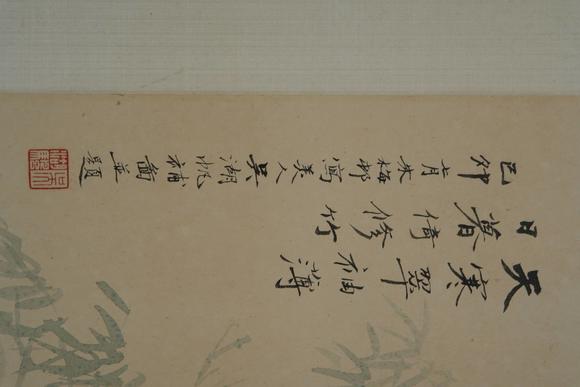 天寒翠袖薄
日暮倚修竹
己卯七月朱梅邨寫美人吳湖帆補並題